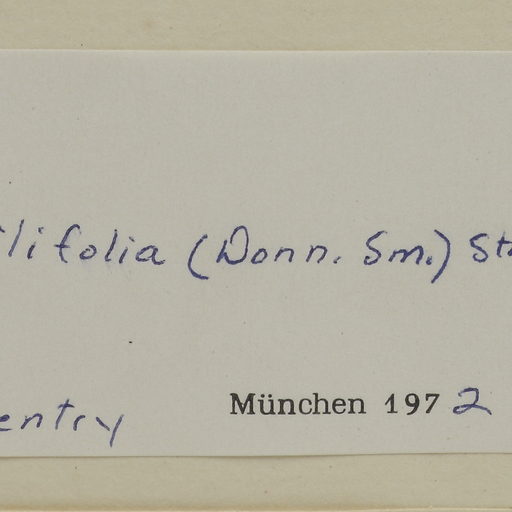 ilifolia (Donn. Sm.) St
entry München 1972